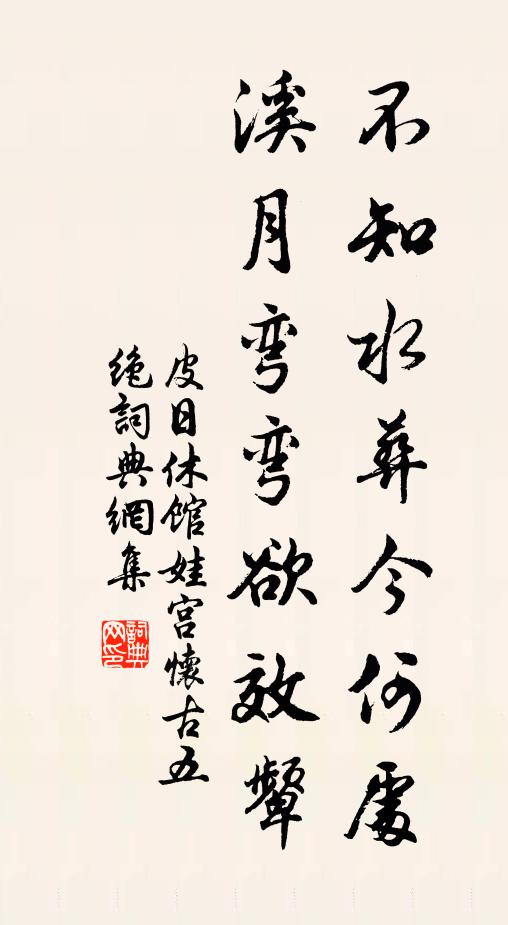 不知水葬今何處
溪月彎彎欲效顰
皮日休館娃宮懷古五
絕詞典網集
詞典
网印